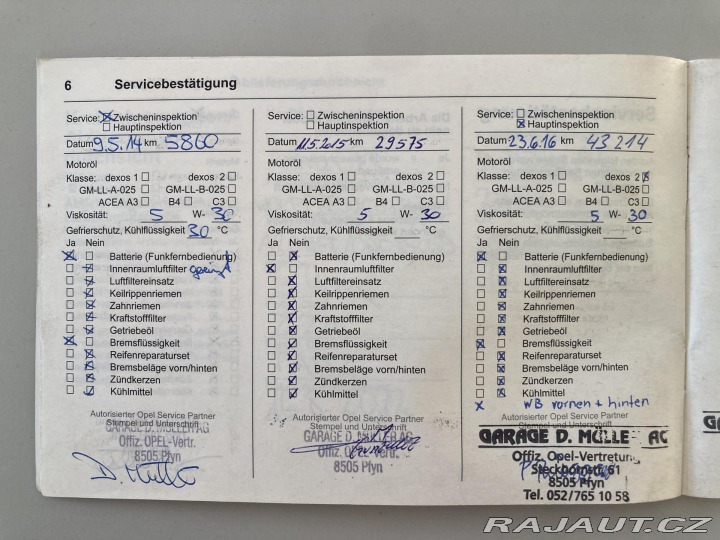 6 Servicebestätigung
Service: Zwischeninspektion
Hauptinspektion
Datum 9.5.14 km 5860
Motoröl
Klasse: dexos 1 dexos 2
GM-LL-A-025 GM-LL-B-025
ACEA A3 B4 C3
Viskosität: 5 W- 30
Gefrierschutz, Kühlflüssigkeit 30 °C
Ja Nein
Batterie (Funkfernbedienung)
Innenraumluftfilter
Luftfiltereinsatz
Keilrippenriemen
Zahnriemen
Kraftstofffilter
Getriebeöl
Bremsflüssigkeit
Reifenreparaturset
Bremsbeläge vorn/hinten
Zündkerzen
Kühlmittel
Autorisierter Opel Service Partner
Stempel und Unterschrift
GARAGE D. MÜLLER AG
Offiz. OPEL-Vertr.
8505 Pfyn
D. Müller
Service: Zwischeninspektion
Hauptinspektion
Datum 11.5.2015 km 29575
Motoröl
Klasse: dexos 1 dexos 2
GM-LL-A-025 GM-LL-B-025
ACEA A3 B4 C3
Viskosität: 5 W- 30
Gefrierschutz, Kühlflüssigkeit °C
Ja Nein
Batterie (Funkfernbedienung)
Innenraumluftfilter
Luftfiltereinsatz
Keilrippenriemen
Zahnriemen
Kraftstofffilter
Getriebeöl
Bremsflüssigkeit
Reifenreparaturset
Bremsbeläge vorn/hinten
Zündkerzen
Kühlmittel
Autorisierter Opel Service Partner
Stempel und Unterschrift
GARAGE D. MÜLLER AG
Offiz. OPEL-Vertr.
8505 Pfyn
Service: Zwischeninspektion
Hauptinspektion
Datum 23.6.16 km 43214
Motoröl
Klasse: dexos 1 dexos 2
GM-LL-A-025 GM-LL-B-025
ACEA A3 B4 C3
Viskosität: 5 W- 30
Gefrierschutz, Kühlflüssigkeit °C
Ja Nein
Batterie (Funkfernbedienung)
Innenraumluftfilter
Luftfiltereinsatz
Keilrippenriemen
Zahnriemen
Kraftstofffilter
Getriebeöl
Bremsflüssigkeit
Reifenreparaturset
Bremsbeläge vorn/hinten
Zündkerzen
Kühlmittel
x WB vornen + hinten
Autorisierter Opel Service Partner
Stempel und Unterschrift
GARAGE D. MÜLLE AG
Offiz. Opel-Vertretung
Steckbornstr. 61
8505 Pfyn
Tel. 052/765 10 58
RAJAUT.CZ